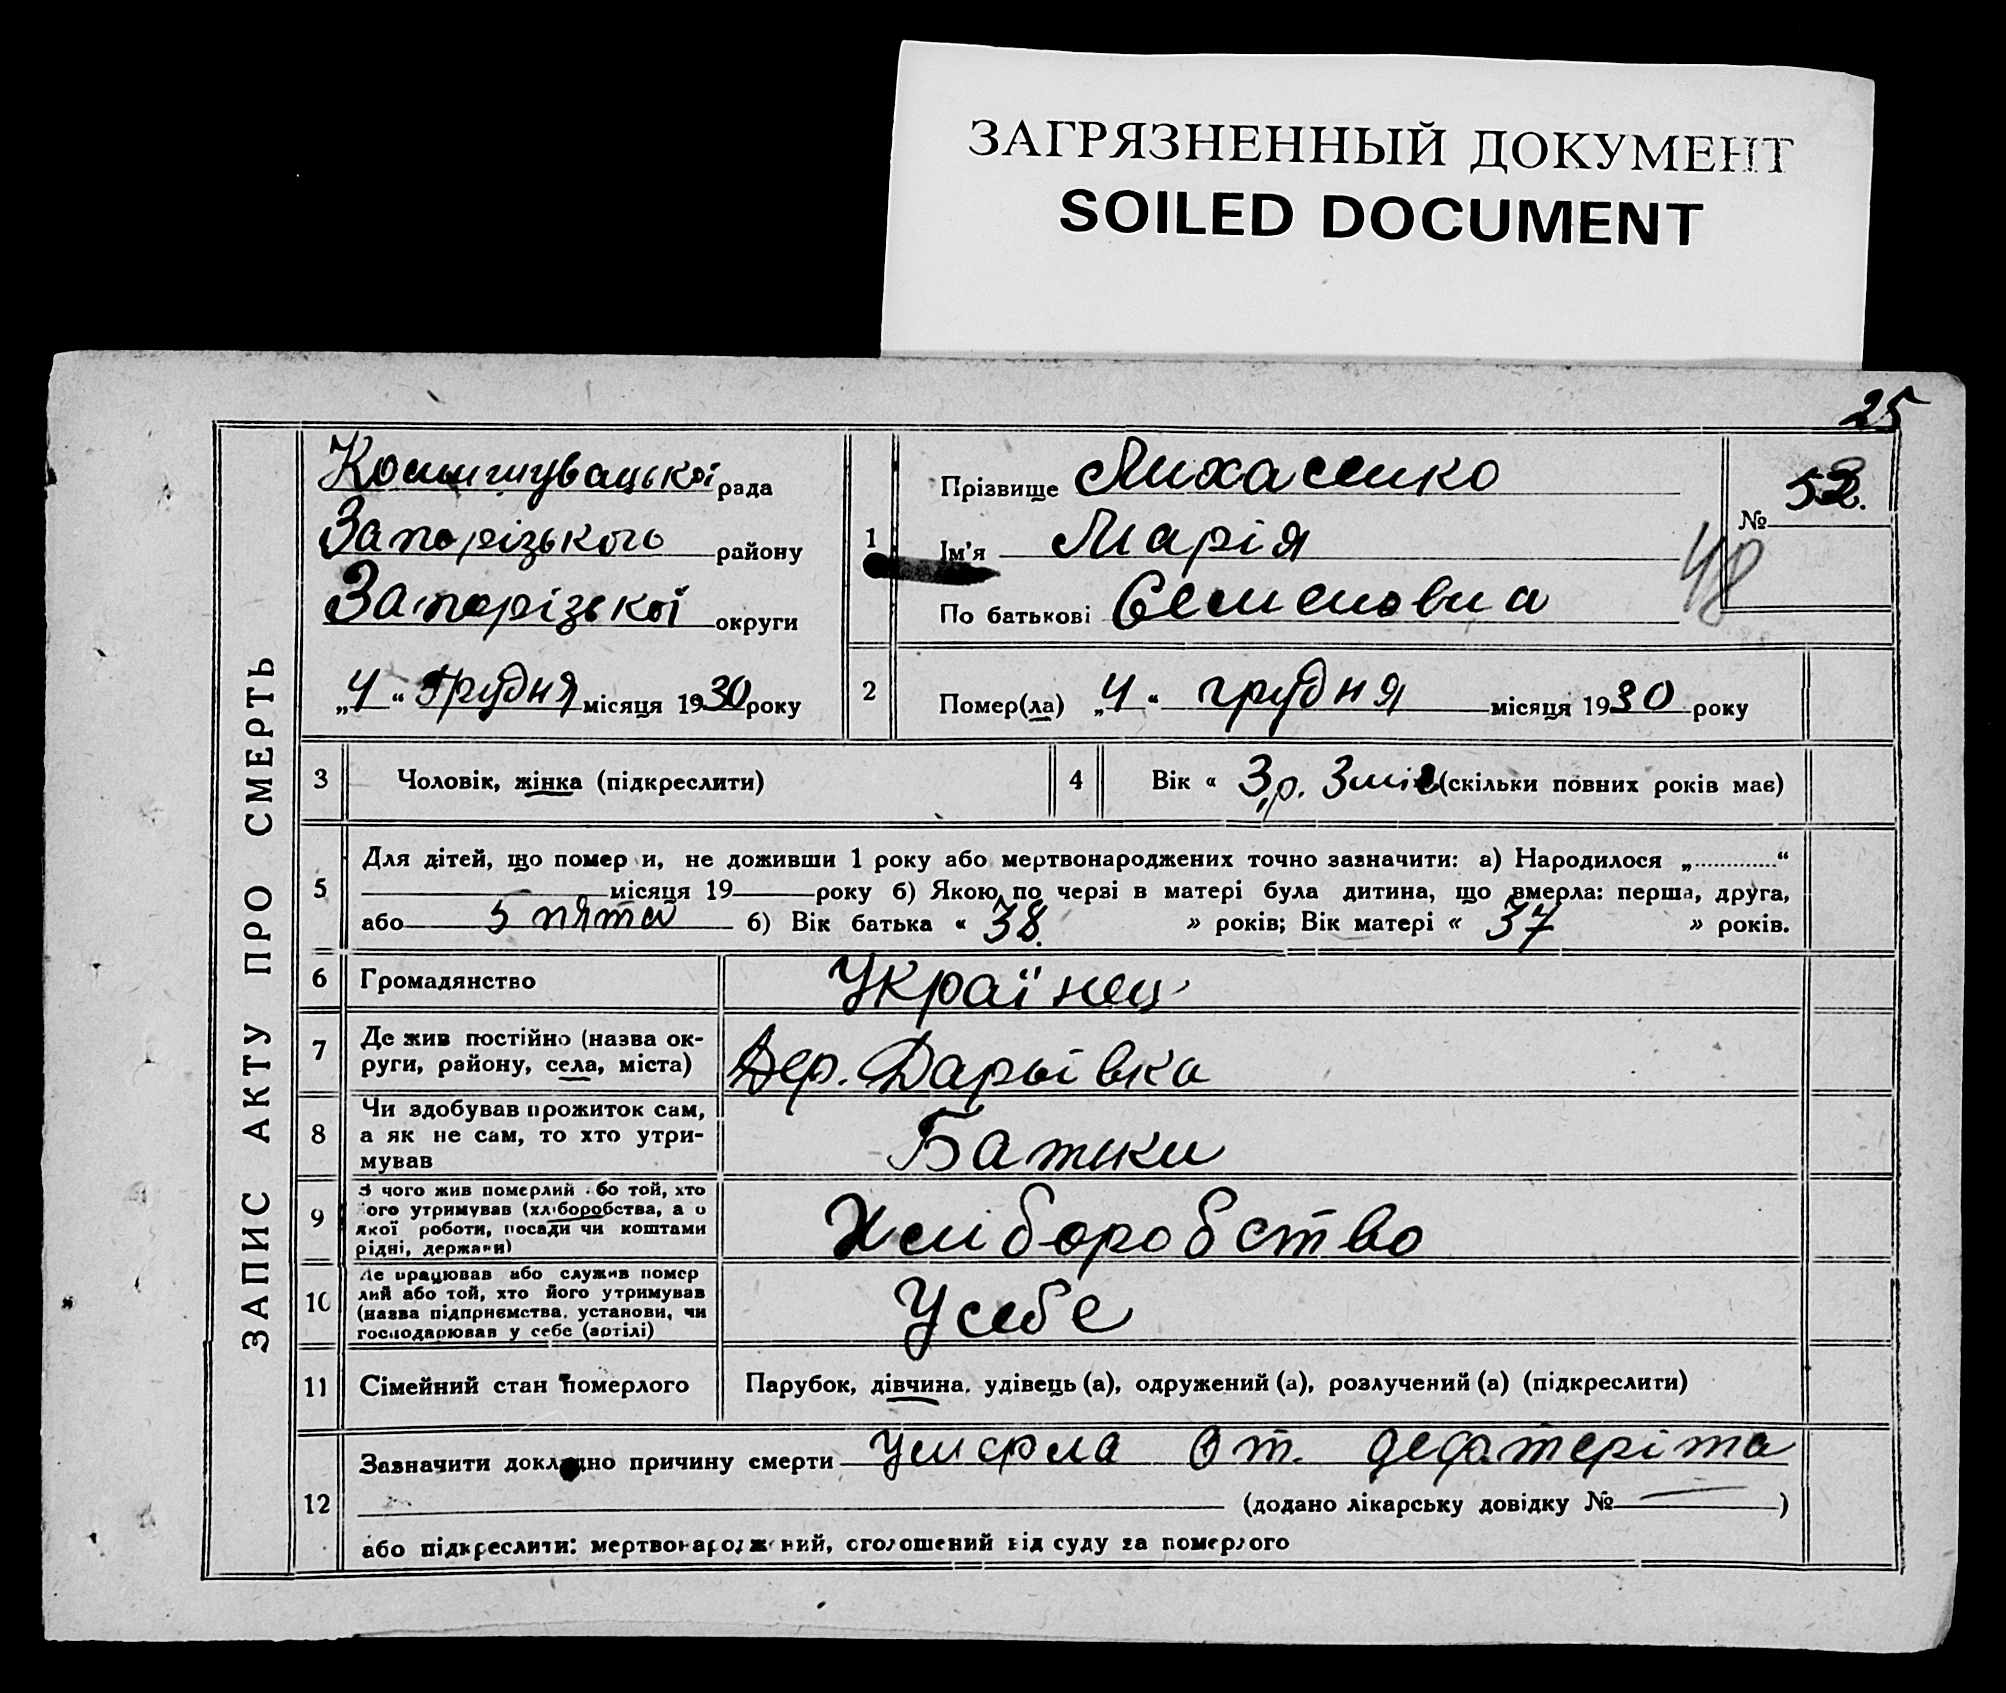 ЗАГРЯЗНЕННЫЙ ДОКУМЕНТ
SOILED DOCUMENT
25
ЗАПИС АКТУ ПРО СМЕРТЬ
Комишувацької рада
Запорізького району
Запорізької округи
„4“ Грудня місяця 1930 року
1 Прізвище Михасенко
Ім'я Марія
По батькові Семеновна
№ 52.
48
2 Помер(ла) „4“ грудня місяця 1930 року
3 Чоловік, жінка (підкреслити)
4 Вік « 3 р. 3 міс (скільки повних років має)
5 Для дітей, що помер и, не доживши 1 року або мертвонароджених точно зазначити: а) Народилося „............“
місяця 19 року б) Якою по черзі в матері була дитина, що вмерла: перша, друга,
або 5 пята б) Вік батька « 38. » років; Вік матері « 37 » років.
6 Громадянство Українец
7 Де жив постійно (назва ок-
руги, району, села, міста) Дер. Дарьівка
8 Чи здобував прожиток сам,
а як не сам, то хто утри-
мував Батьки
9 З чого жив померлий або той, хто
його утримував (хліборобства, а о
якої роботи, посади чи коштами
рідні, держави) Хліборобство
10 Де працював або служив помер
лий або той, хто його утримував
(назва підприємства, установи, чи
господарював у себе (артілі) У себе
11 Сімейний стан померлого Парубок, дівчина, удівець (а), одружений (а), розлучений (а) (підкреслити)
12 Зазначити докладно причину смерти умерла от. дефатеріта
(додано лікарську довідку № — )
або підкреслити: мертвонароджений, оголошений від суду за померлого